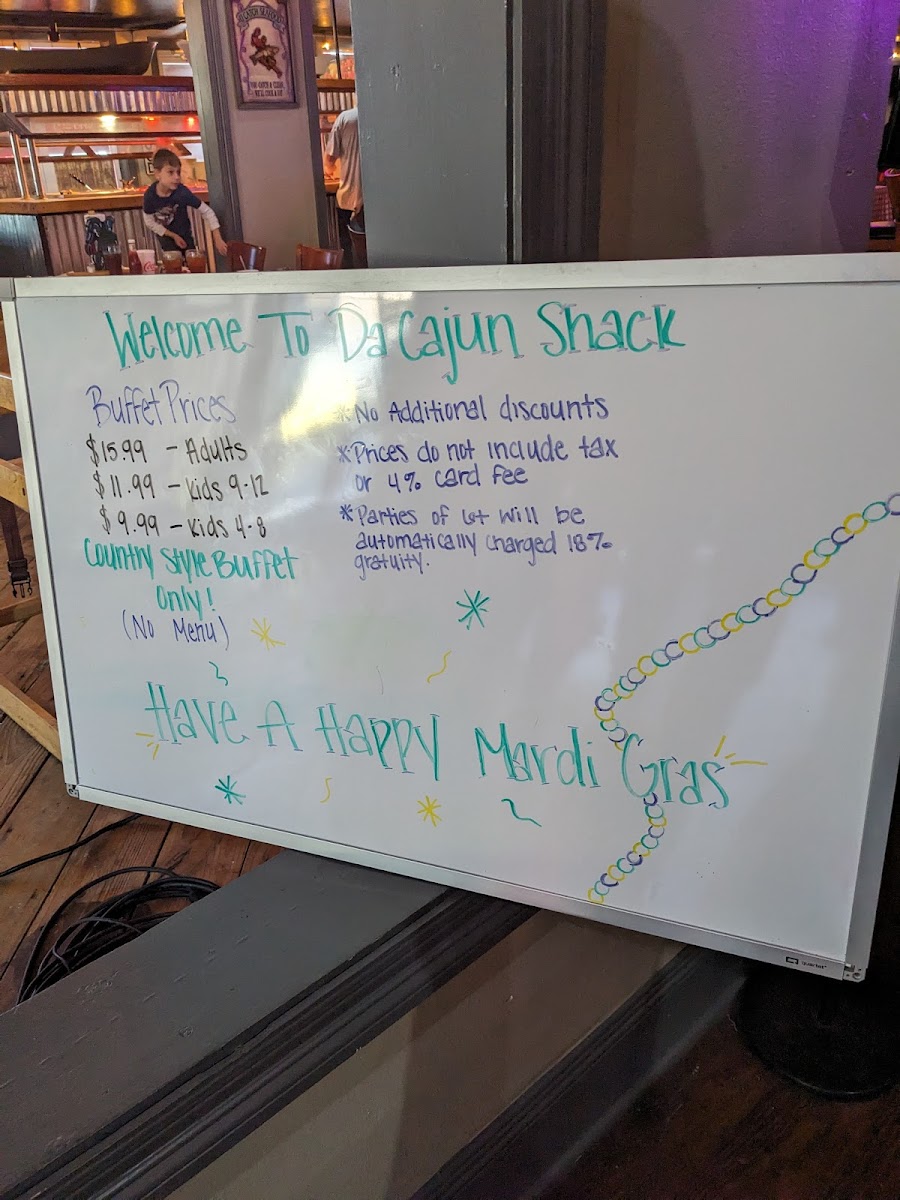 Welcome To Da Cajun Shack
Buffet Prices
$15.99 - Adults
$11.99 - Kids 9-12
$9.99 - Kids 4-8
Country Style Buffet
Only!
(No Menu)
*No Additional discounts
*Prices do not include tax
or 4% card fee
*Parties of 6+ will be
automatically charged 18%
gratuity.
Have A Happy Mardi Gras
quartet